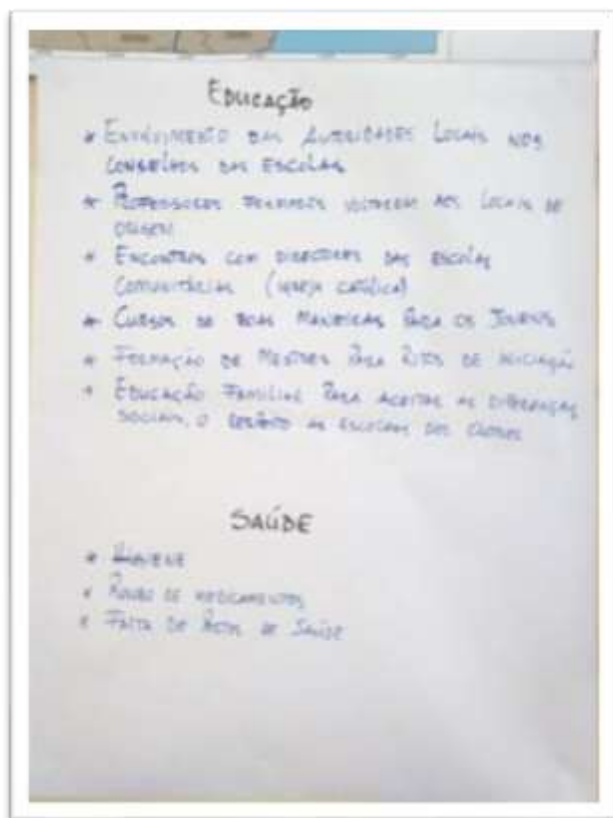 EDUCAÇÃO
* ENVOLVIMENTO DAS AUTORIDADES LOCAIS NOS
CONSELHOS DAS ESCOLAS
* PROFESSORES FORMADOS VOLTAREM AOS LOCAIS DE
ORIGEM
* ENCONTROS COM DIRECTORES DAS ESCOLAS
COMUNITÁRIAS (IGREJA CATÓLICA)
* CURSOS DE BOAS MANEIRAS PARA OS JOVENS
* FORMAÇÃO DE MESTRES PARA RITOS DE INICIAÇÃO
* EDUCAÇÃO FAMILIAR PARA ACEITAR AS DIFERENÇAS
SOCIAIS, O RESPEITO AS ESCOLHAS DOS OUTROS
SAÚDE
* HIGIENE
* ROUBO DE MEDICAMENTOS
* FALTA DE POSTOS DE SAÚDE